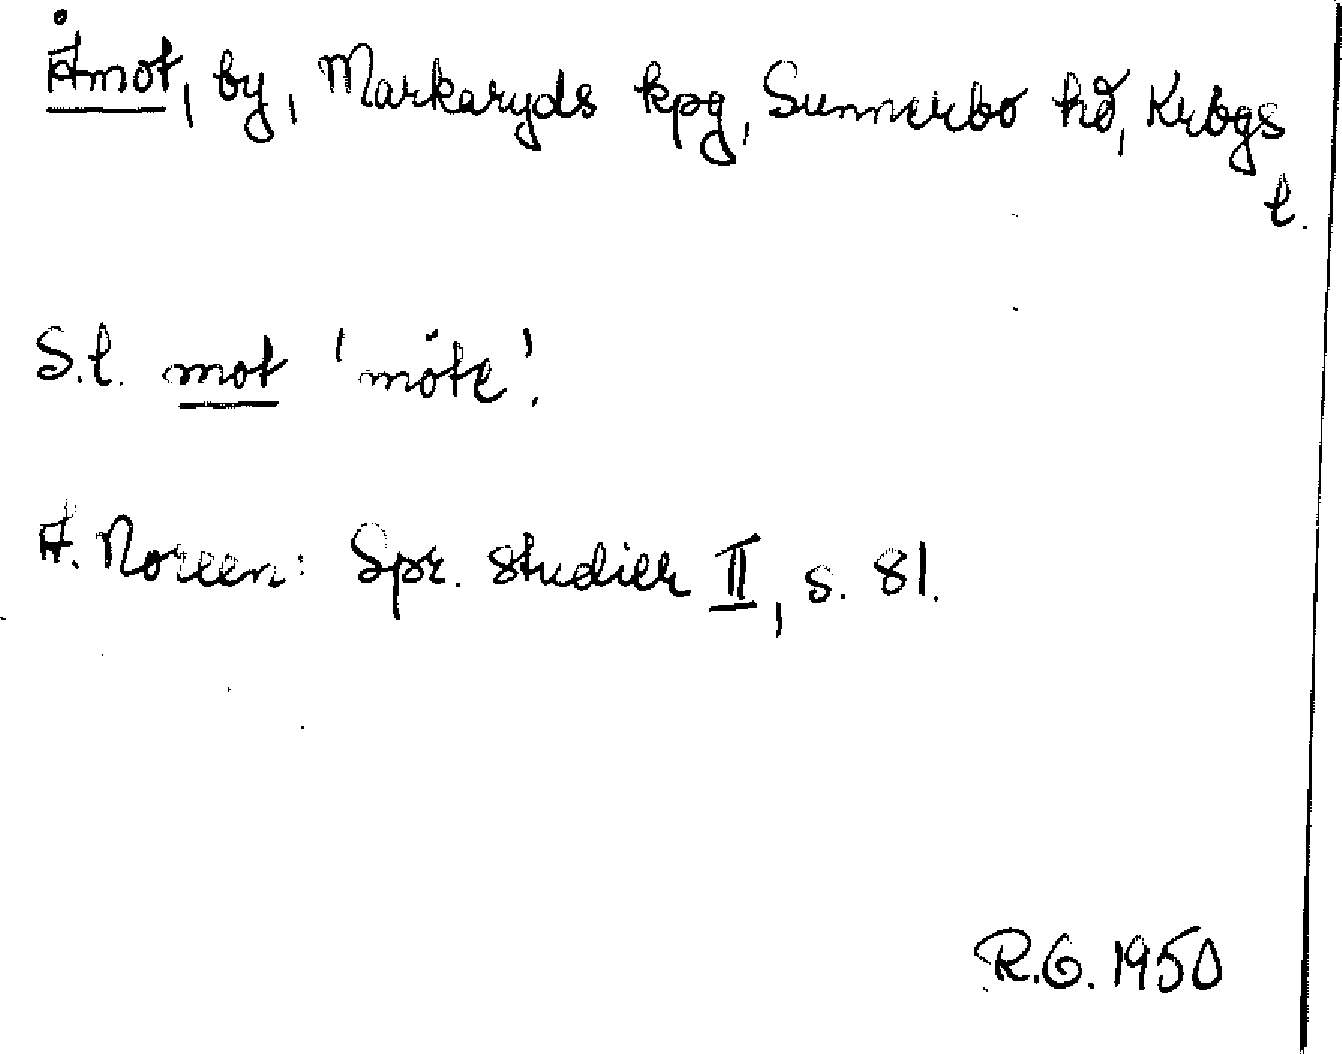 Åmot, by, Markaryds kpg, Sunnerbo hd, Krbgs
l.
S.l. mot 'möte'.
A. Noreen: Spr. studier II, s. 81.
R.G. 1950